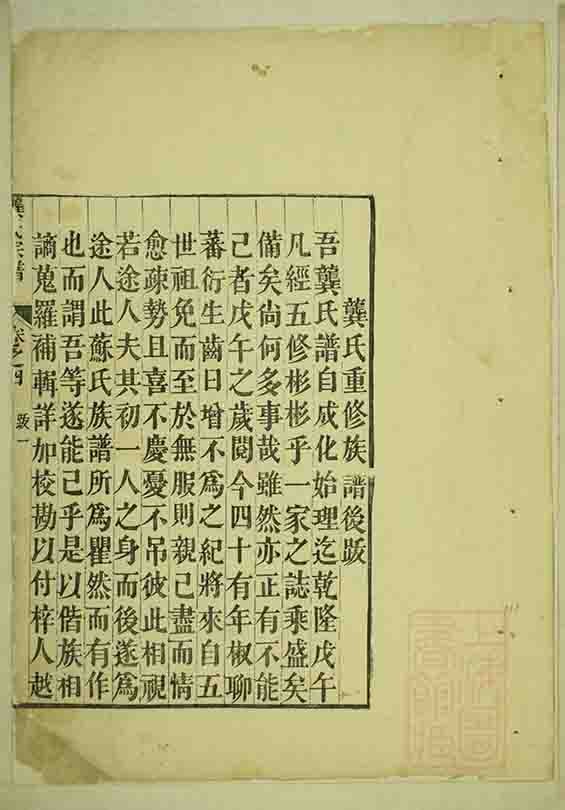 龔氏重修族譜後跋
吾龔氏譜自成化始理迄乾隆戊午
凡經五修彬彬乎一家之誌乘盛矣
備矣尚何多事哉雖然亦正有不能
已者戊午之歲閱今四十有年椒聊
蕃衍生齒日增不為之紀將來自五
世祖免而至於無服則親已盡而情
愈疎勢且喜不慶憂不吊彼此相視
若途人夫其初一人之身而後遂為
途人此蘇氏族譜所為瞿然而有作
也而謂吾等遂能已乎是以偕族相
謫蒐羅補輯詳加校勘以付梓人越
龔氏宗譜
卷之四
跋一